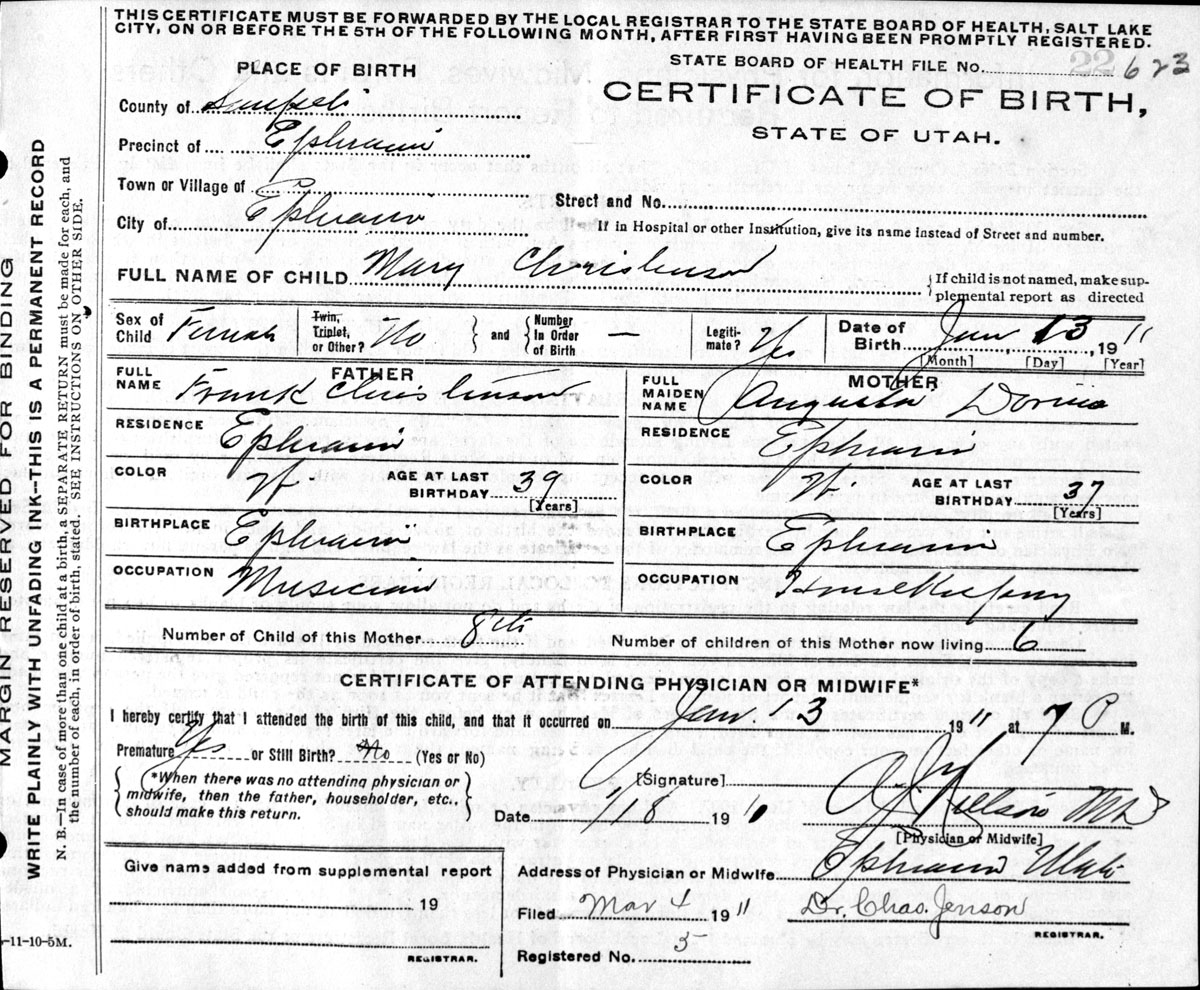 THIS CERTIFICATE MUST BE FORWARDED BY THE LOCAL REGISTRAR TO THE STATE BOARD OF HEALTH, SALT LAKE
CITY, ON OR BEFORE THE 5TH OF THE FOLLOWING MONTH, AFTER FIRST HAVING BEEN PROMPTLY REGISTERED.
STATE BOARD OF HEALTH FILE No. 22 623
PLACE OF BIRTH
CERTIFICATE OF BIRTH,
STATE OF UTAH.
County of Sanpete
Precinct of Ephraim
Town or Village of
Street and No.
City of Ephraim
If in Hospital or other Institution, give its name instead of Street and number.
FULL NAME OF CHILD Mary Christenson
If child is not named, make sup-
plemental report as directed
Sex of Child Female
Twin, Triplet, or Other? No
and Number In Order of Birth —
Legiti-mate? Yes
Date of Birth Jan 13, 1911
[Month] [Day] [Year]
FATHER
FULL NAME Frank Christenson
RESIDENCE Ephraim
COLOR W
AGE AT LAST BIRTHDAY 39
[Years]
BIRTHPLACE Ephraim
OCCUPATION Musician
MOTHER
FULL MAIDEN NAME Augusta Dorius
RESIDENCE Ephraim
COLOR W
AGE AT LAST BIRTHDAY 37
[Years]
BIRTHPLACE Ephraim
OCCUPATION Housekeeping
Number of Child of this Mother 8th
Number of children of this Mother now living 6
CERTIFICATE OF ATTENDING PHYSICIAN OR MIDWIFE*
I hereby certify that I attended the birth of this child, and that it occurred on Jan. 13 1911 at 7 P M.
Premature Yes or Still Birth? No (Yes or No)
*When there was no attending physician or
midwife, then the father, householder, etc.,
should make this return.
[Signature] Nielson MD
[Physician or Midwife]
Date 1/18 1911
Address of Physician or Midwife Ephraim Utah
Give name added from supplemental report
19
REGISTRAR.
Filed Mar 4 1911 Dr. Chas. Jenson
REGISTRAR.
Registered No. 5
MARGIN RESERVED FOR BINDING
WRITE PLAINLY WITH UNFADING INK--THIS IS A PERMANENT RECORD
N. B.—In case of more than one child at a birth, a SEPARATE RETURN must be made for each, and
the number of each, in order of birth, stated. SEE INSTRUCTIONS ON OTHER SIDE.
-11-10-5M.